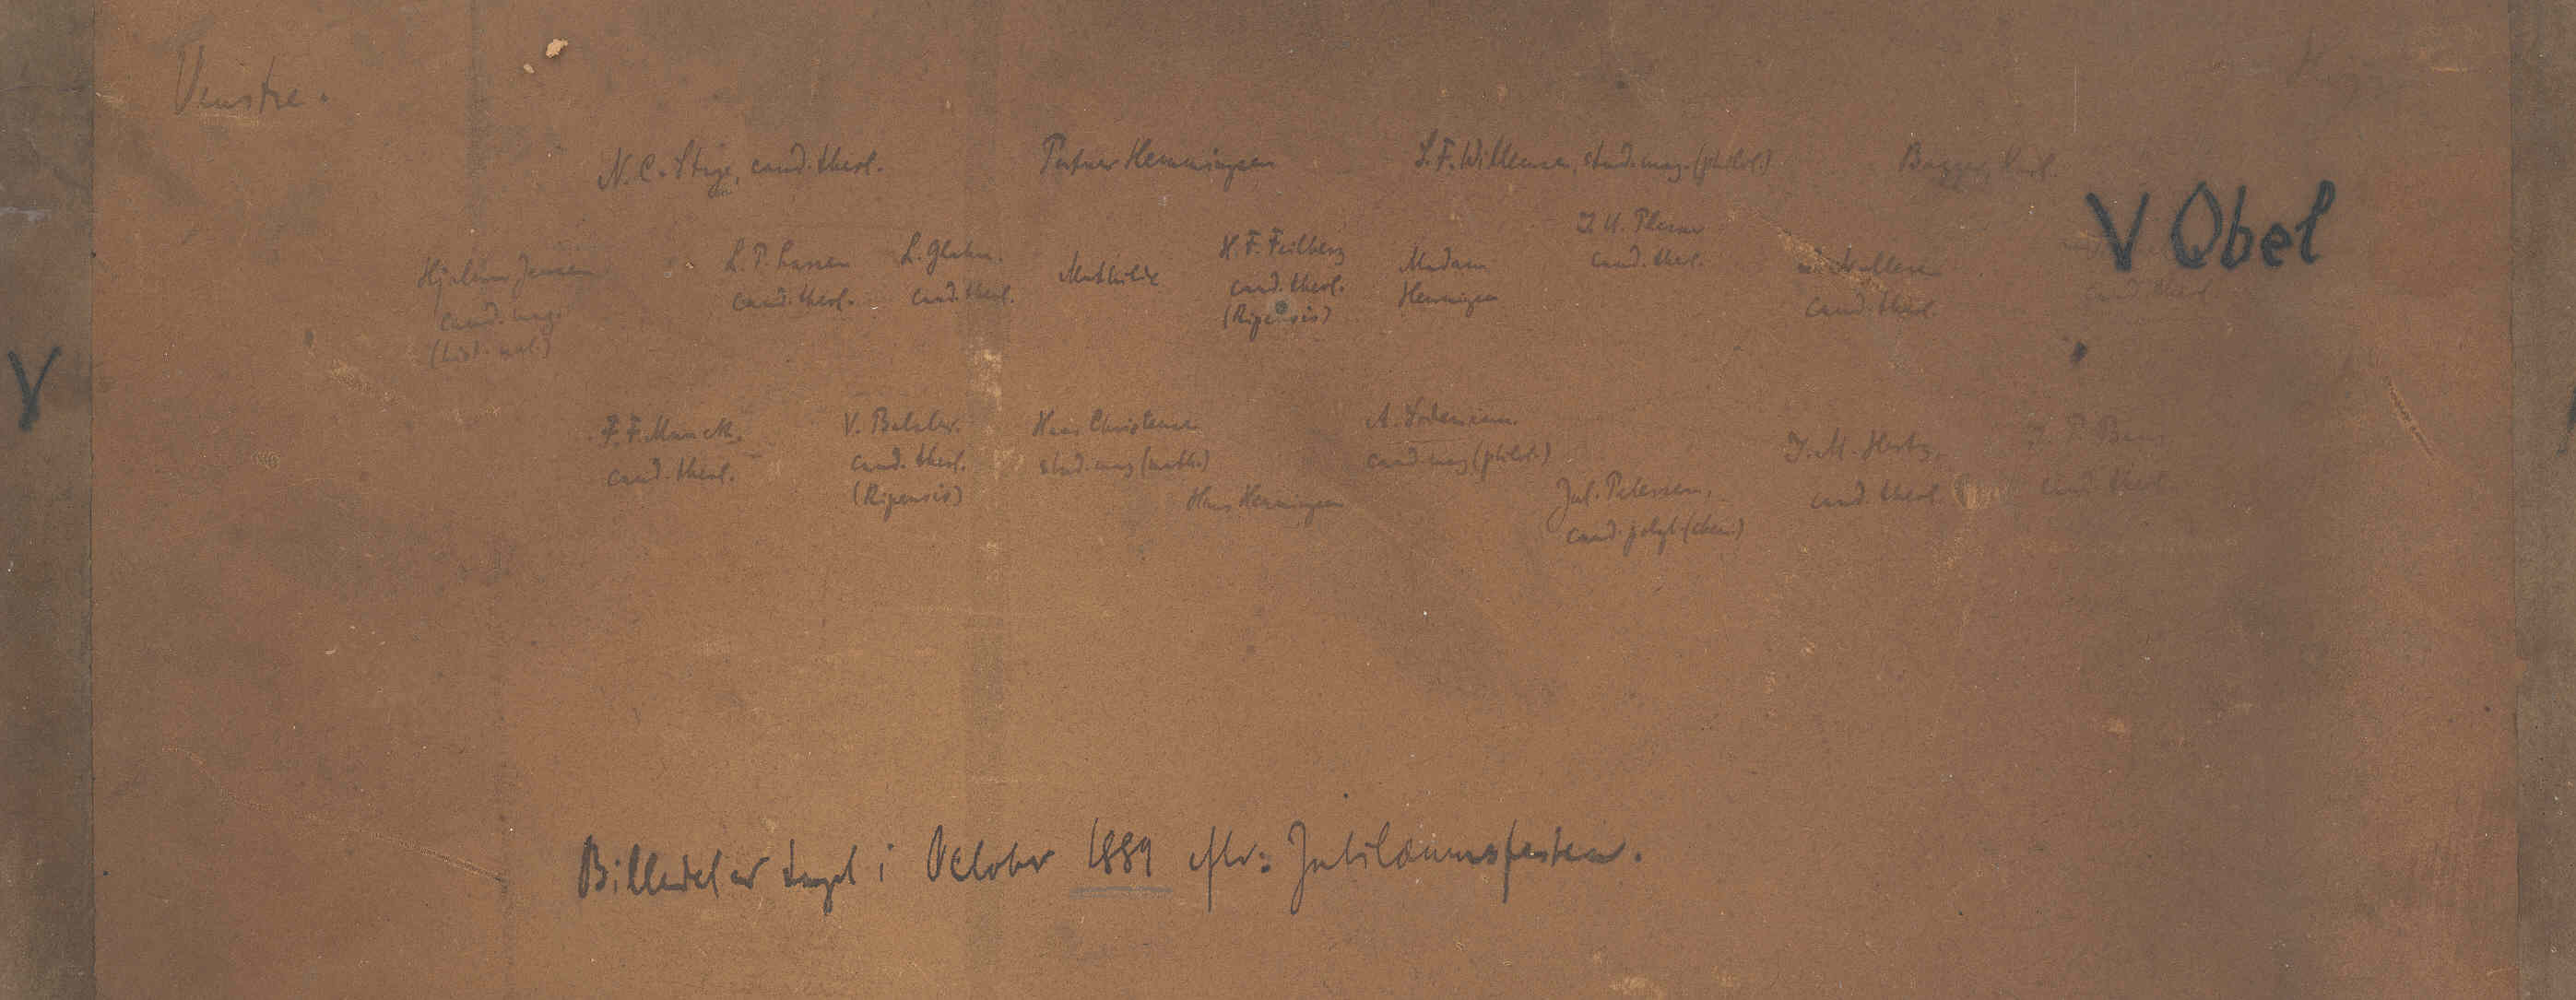 Venstre.
N. C. Stege, cand. theol.
Portner Henningsen
S. F. Willemsen, stud. mag. (philol.)
V Obel
Hjalmar Jensen
cand. mag.
(hist. nat.)
L. P. Larsen
cand. theol.
L. Glahn.
cand. theol.
Mathilde
H. F. Feilberg
cand. theol.
(Ripensis)
Madam
Henningsen
cand. theol.
cand. theol.
cand. theol.
V
F. F. Munck.
cand. theol.
V. Balslev.
cand. theol.
(Ripensis)
Hans Christensen
stud. mag (math.)
Hans Henningsen
cand. mag (philol.)
Jul. Petersen,
cand. polyt. (chem.)
J. M. Hertz,
cand. theol.
cand. theol.
Billedet er taget i October 1889 efter Jubilæumsfesten.